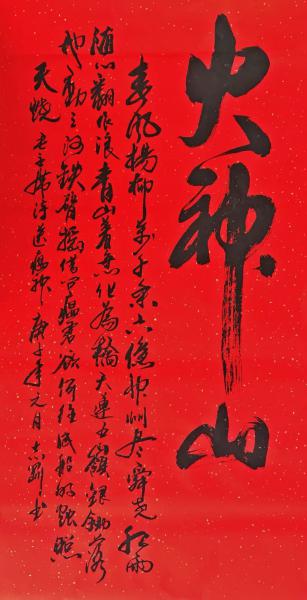 火神山
春风楊柳万千条六億神州尽舜尧红雨
随心翻作浪青山着意化為橋天連五嶺銀鋤落
地動三河铁臂摇借问瘟君欲何往纸船明烛照
天烧 毛主席诗送瘟神 庚子年元月 书